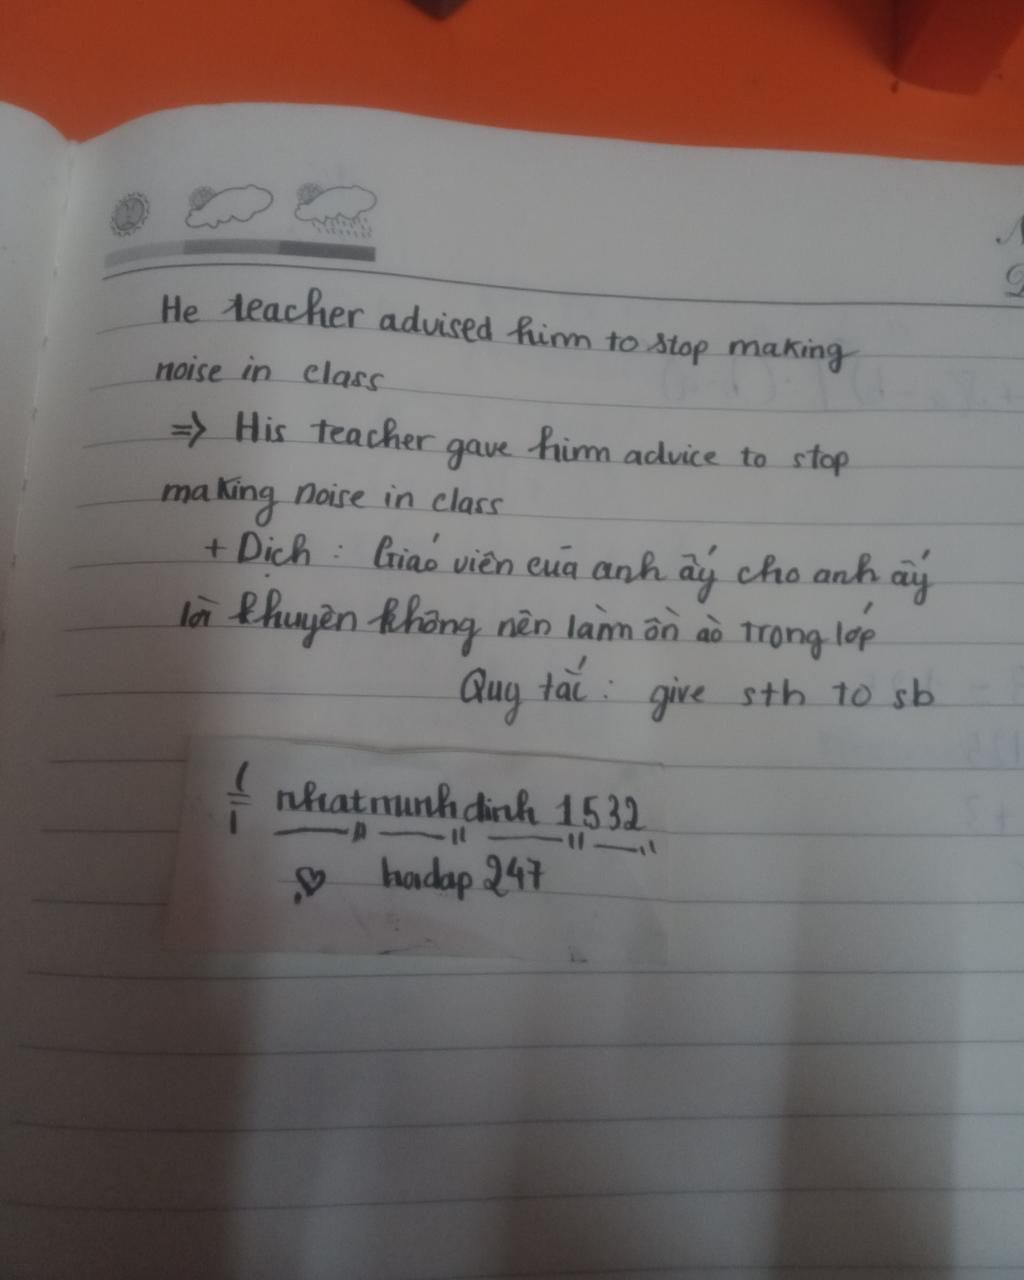 He teacher advised him to stop making
noise in class
=> His teacher gave him advice to stop
making noise in class
+ Dịch : Giáo viên của anh ấy cho anh ấy
lời khuyên không nên làm ồn ào trong lớp
Quy tắc : give sth to sb
nhatminhdinh 1532
hoidap 247